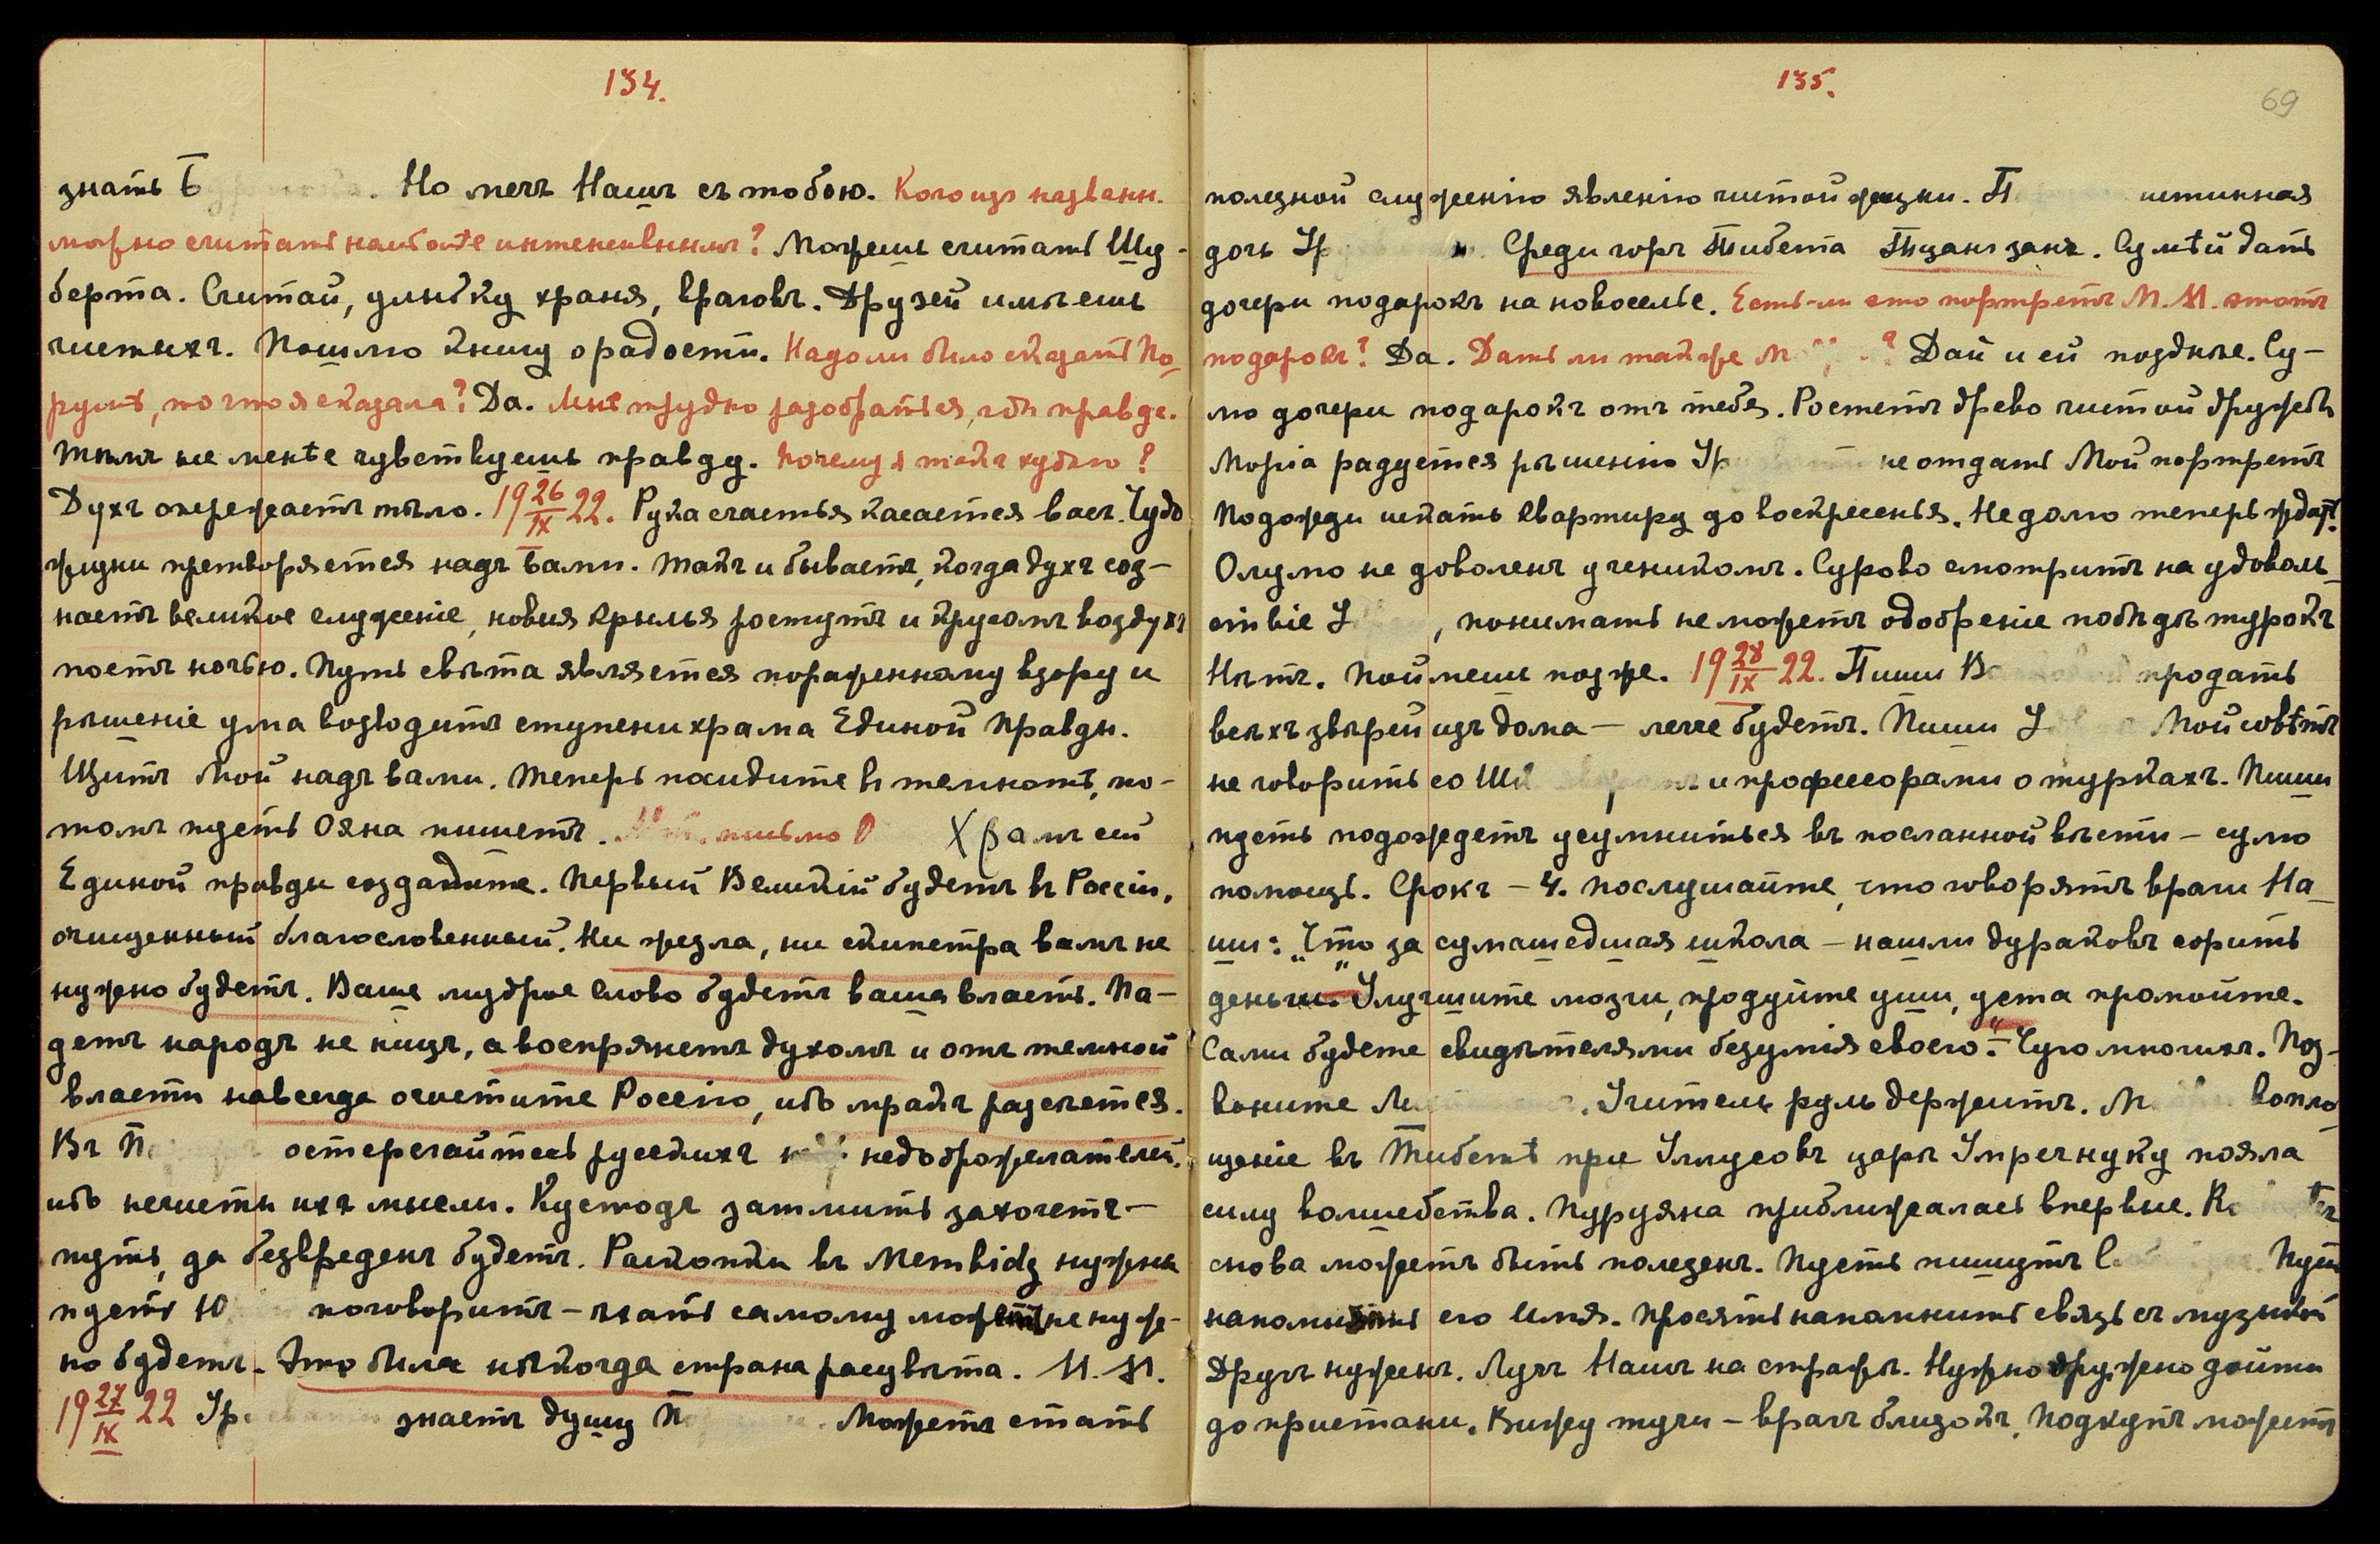 134.
знать Б. Но мечъ Нашъ съ тобою. Кого изъ названн.
можно считать наиболѣе интенсивнымъ? Можешь считать Шу-
берта. Считай, улыбку храня, враговъ. Друзей имѣешь
чистыхъ. Пошлю книгу о радости. Надо ли было сказать По
румѣ, то что я сказала? Да. Мнѣ трудно разобраться, гдѣ правда.
Тѣмъ не менѣе чувствуешь правду. Почему я такъ худѣю?
Духъ опережаетъ тѣло. 19 26/IX 22. Рука счастья касается васъ. Чудо
жизни претворяется надъ вами. Такъ и бываетъ, когда духъ соз-
наетъ великое служеніе, новыя крылья ростутъ и кругомъ воздухъ
поетъ ночью. Путь свѣта является пораженному взору и
рѣшеніе ума возводитъ ступени храма Единой Правды.
Щитъ Мой надъ вами. Теперь посидите въ темнотѣ, по-
томъ пусть Ояна пишетъ. письмо Храмъ сей
Единой правды создадите. Первый Великій будетъ въ Россіи,
очищенный благословенный. Ни жезла, ни скипетра вамъ не
нужно будетъ. Ваше мудрое слово будетъ ваша власть. Па-
детъ народъ не ницъ, а воспрянетъ духомъ и отъ темной
власти навсегда очистите Россію, ибо мракъ разсѣется.
Въ остерегайтесь русскихъ недоброжелателей,
ибо нечисты ихъ мысли. Кустодъ затмить захочетъ —
путь, да безвреденъ будетъ. Раскопки въ нужны
пусть Ю поговоритъ — ѣхать самому можетъ не нуж-
но будетъ. Это была нѣкогда страна расцвѣта. М. М.
19 27/IX 22 Ур знаетъ душу П Можетъ стать
135.
69
полезной служенію явленію чистой жизни. П истинная
дочь Ур Среди горъ Тибета Тцанг занъ. Сумѣй дать
дочери подарокъ на новоселье. Есть-ли это портретъ М. М. этотъ
подарокъ? Да. Дать ли также М ? Дай и ей позднѣе. Су-
мо дочери подарокъ отъ тебя. Ростетъ древо чистой дружбы
Моріа радуется рѣшенію Ур не отдать Мой портретъ
Подожди искать квартиру до воскресенья. Недолго теперь ждать.
Олумо не доволенъ ученикомъ. Сурово смотритъ на удоволь-
ствіе У , понимать не можетъ одобреніе побѣдѣ турокъ
Нѣтъ. Поймешь позже. 19 28/IX 22. Пиши В продать
всѣхъ звѣрей изъ дома — легче будетъ. Пиши У Мой совѣтъ
не говорить со Ш и профессорами о туркахъ. Пиши
пусть подождетъ усумниться въ посланной вѣсти — сумо
помощь. Срокъ — 4. Послушайте, что говорятъ враги На-
ши: „Что за сумашедшая школа — нашли дураковъ сорить
деньги." Улучшите мозги, продуйте уши, уста промойте.
Сами будете свидѣтелями безумія своего." Чую многихъ. Поз-
воните . Учитель руль держитъ. М вопло
щеніе въ Тибетѣ при Иллусовъ царѣ Упречнуку пояла
силу волшебства. Пуруяна приближалась впервые.
снова можетъ быть полезенъ. Пусть пишутъ Пусть
напомнятъ его имя. Просятъ напомнить связь съ музыкой
Другъ нуженъ. Лучъ Нашъ на стражѣ. Нужно дружно дойти
до пристани. Вижу тучи — врагъ близокъ. Подкупъ можетъ